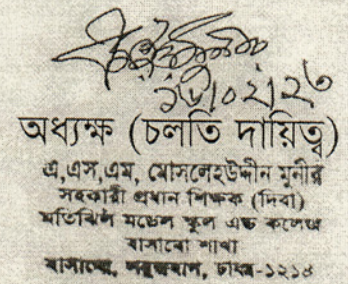 ১৬/০২/২৬
অধ্যক্ষ (চলতি দায়িত্ব)
এ,এস,এম, মোসলেহউদ্দীন মুনীর
সহকারী প্রধান শিক্ষক (দিবা)
মতিঝিল মডেল স্কুল এন্ড কলেজ
বাসাবো শাখা
বাসাবো, সবুজবাগ, ঢাকা-১২১৪